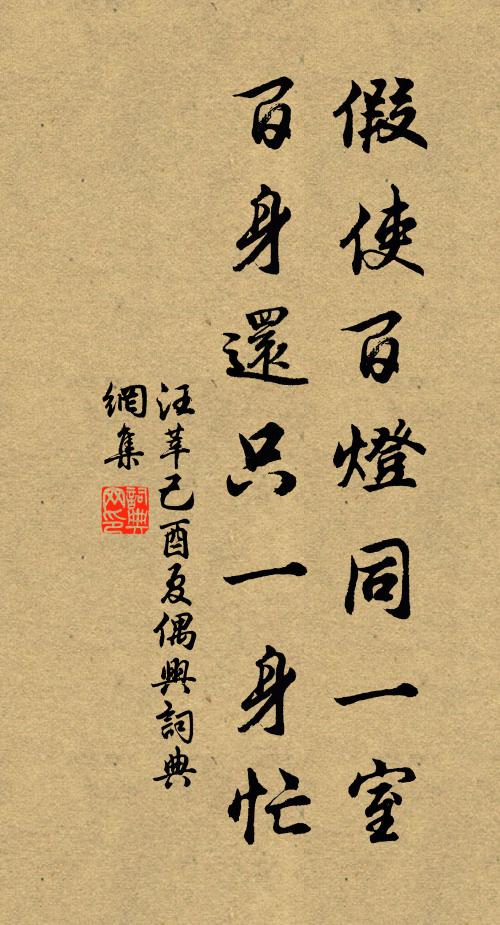 假使百燈同一室
百身還只一身忙
汪莘己酉夏偶興詞典
網集
詞典
网印